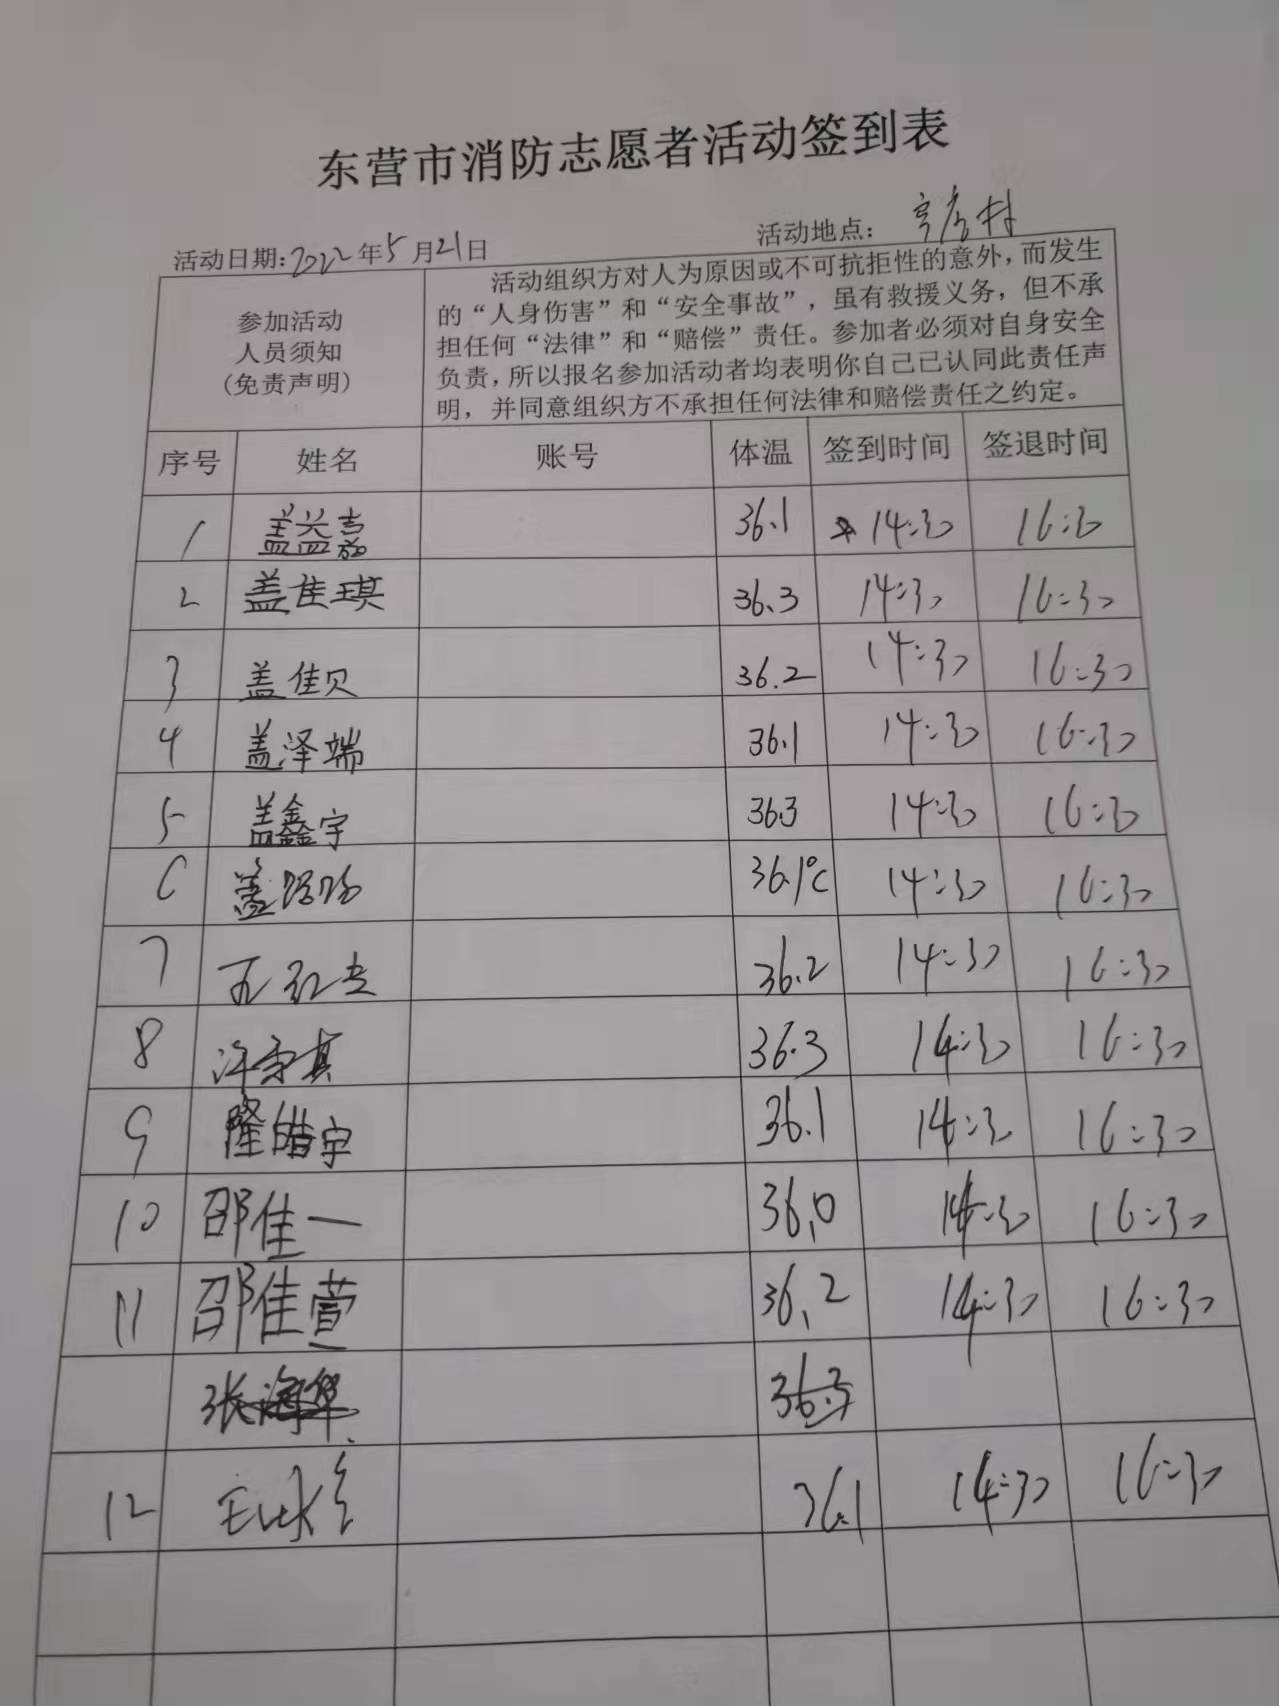 东营市消防志愿者活动签到表
活动日期:2022年5月21日 活动地点: 村
参加活动
人员须知
(免责声明)
活动组织方对人为原因或不可抗拒性的意外,而发生
的“人身伤害”和“安全事故”,虽有救援义务,但不承
担任何“法律”和“赔偿”责任。参加者必须对自身安全
负责,所以报名参加活动者均表明你自己已认同此责任声
明,并同意组织方不承担任何法律和赔偿责任之约定。
序号 姓名 账号 体温 签到时间 签退时间
1 盖益嘉 36.1 14:30 16:30
2 盖佳琪 36.3 14:30 16:30
3 盖佳贝 36.2 14:30 16:30
4 盖泽端 36.1 14:30 16:30
5 盖鑫宇 36.3 14:30 16:30
6 盖 36.1℃ 14:30 16:30
7 36.2 14:30 16:30
8 许 36.3 14:30 16:30
9 隆皓宇 36.1 14:30 16:30
10 邵佳一 36.0 14:30 16:30
11 邵佳萱 36.2 14:30 16:30
张海华
12 36.1 14:30 16:30